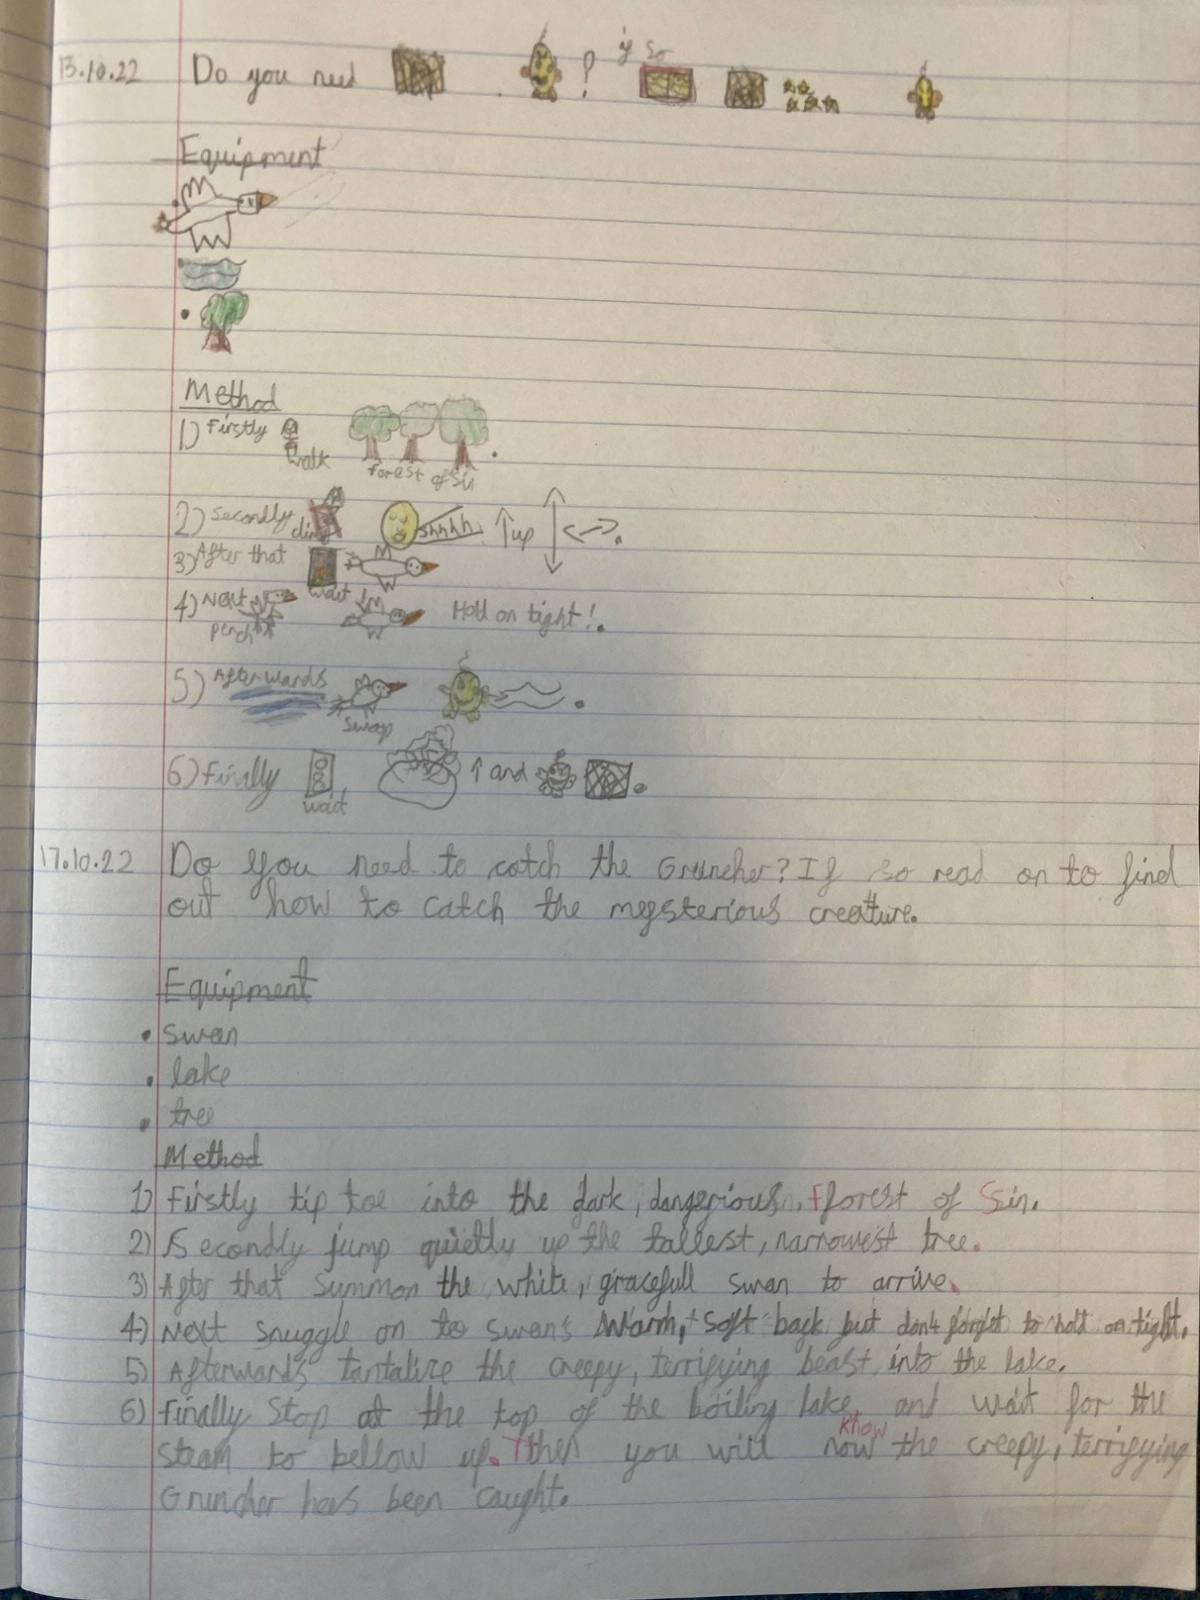 13.10.22 Do you need ? if so
Equipment
Method
1) Firstly walk forest of Sin .
2) Secondly climb shhhh up .
3) After that wait
4) Next perch Hold on tight! .
5) Afterwards swoop .
6) Finally wait and .
17.10.22 Do you need to catch the Gruncher? If so read on to find
out how to catch the mysterious creature.
Equipment
• swan
• lake
• tree
Method
1) Firstly tip toe into the dark, dangerious, Fforest of Sin.
2) Secondly jump quietly up the tallest, narrowest tree.
3) After that summon the white, gracefull swan to arrive.
4) Next snuggle on too swans warm, soft back but dont forget to hold on tight.
5) Afterwards tantalize the creepy, terrifying beast into the lake.
6) Finally stop at the top of the boiling lake, and wait for the
know
steam to bellow up. Then you will now the creepy, terrifying
Gruncher has been caught.